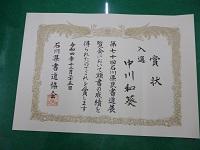 賞状
入選
中川和葵
第七十回石川県児童書道展
覧会において頭書の成績を
得られたのでこれを賞します
石川県書道協会